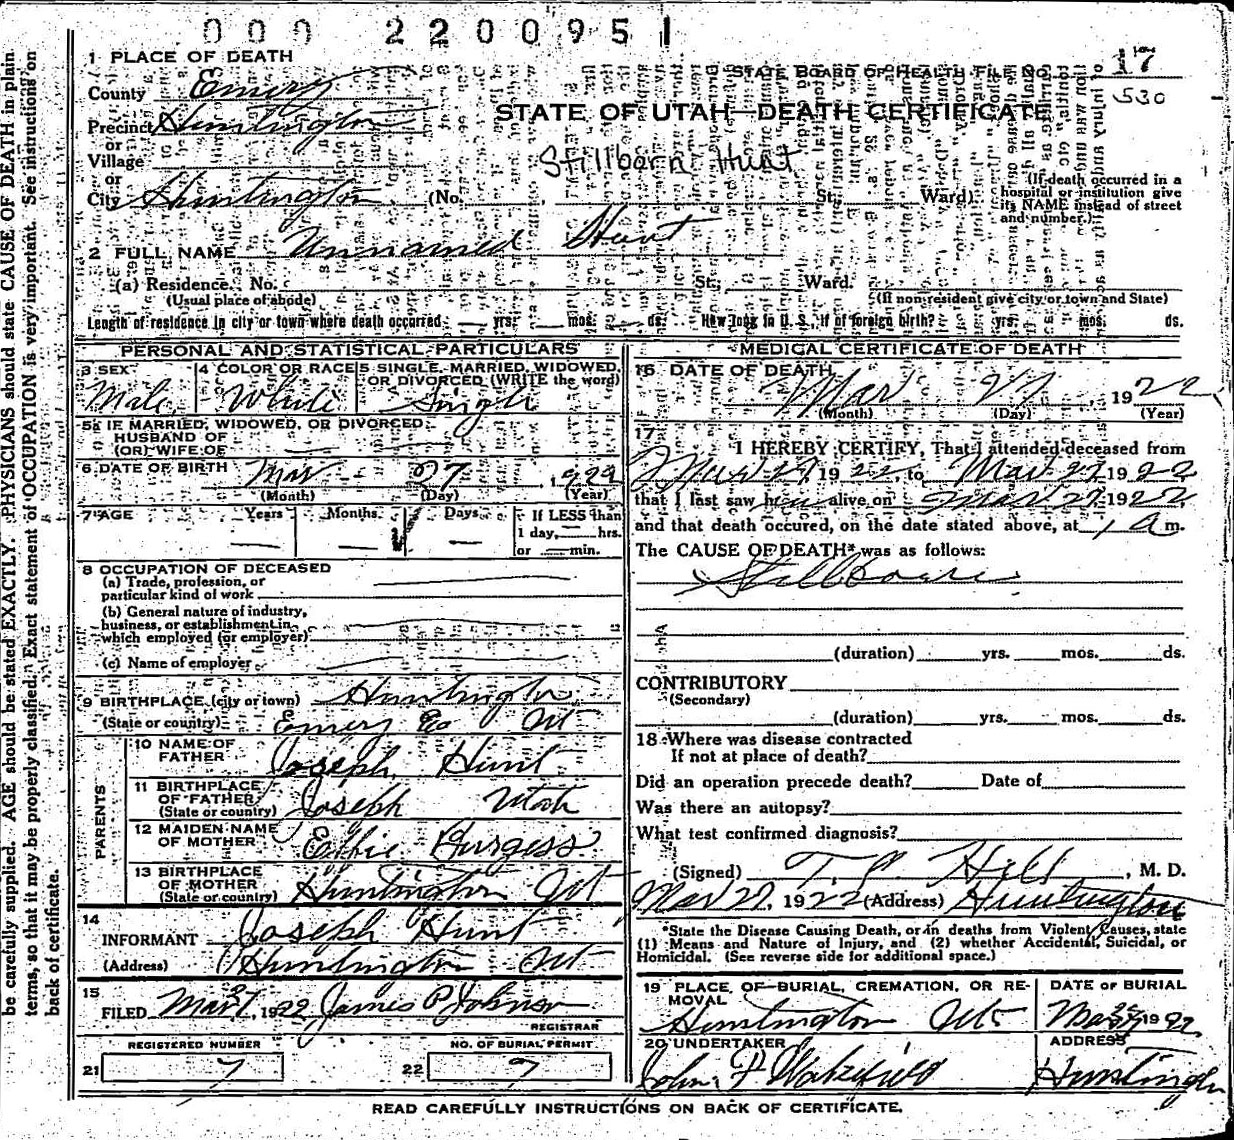 0 0 0 2 2 0 0 9 5 1
1 PLACE OF DEATH
STATE BOARD OF HEALTH FILE 17
530
County Emery
STATE OF UTAH—DEATH CERTIFICATE
Precinct Huntington
or
Village
Stillborn Hunt
or
City Huntington (No. St. Ward)
(If death occurred in a
hospital or institution give
its NAME instead of street
and number.)
2 FULL NAME Unnamed Hunt
(a) Residence. No. St. Ward.
(Usual place of abode)
(If non-resident give city or town and State)
Length of residence in city or town where death occurred yrs. mos. ds. How long in U. S., if of foreign birth? yrs. mos. ds.
PERSONAL AND STATISTICAL PARTICULARS
3 SEX
Male
4 COLOR OR RACE
White
5 SINGLE, MARRIED, WIDOWED,
OR DIVORCED (WRITE the word)
Single
5a IF MARRIED, WIDOWED, OR DIVORCED
HUSBAND OF
(OR) WIFE OF
6 DATE OF BIRTH Mar 27, 1922
(Month) (Day) (Year)
7 AGE Years Months Days If LESS than
1 day, hrs.
or min.
8 OCCUPATION OF DECEASED
(a) Trade, profession, or
particular kind of work
(b) General nature of industry,
business, or establishment in
which employed (or employer)
(c) Name of employer
9 BIRTHPLACE (city or town) Huntington
(State or country) Emery Co Ut
PARENTS
10 NAME OF
FATHER Joseph Hunt
11 BIRTHPLACE
OF FATHER
(State or country) Joseph Utah
12 MAIDEN NAME
OF MOTHER Effie Burgess
13 BIRTHPLACE
OF MOTHER
(State or country) Huntington Ut
14
INFORMANT Joseph Hunt
(Address) Huntington Ut
15
FILED Mar 27, 1922 James P Johnson
REGISTRAR
REGISTERED NUMBER
21 7
NO. OF BURIAL PERMIT
22 7
MEDICAL CERTIFICATE OF DEATH
16 DATE OF DEATH
Mar 27, 1922
(Month) (Day) (Year)
17
I HEREBY CERTIFY, That I attended deceased from
Mar 27, 1922, to Mar 27, 1922
that I last saw him alive on Mar 27, 1922
and that death occured, on the date stated above, at 1 a m.
The CAUSE OF DEATH* was as follows:
Stillborn
(duration) yrs. mos. ds.
CONTRIBUTORY
(Secondary)
(duration) yrs. mos. ds.
18 Where was disease contracted
If not at place of death?
Did an operation precede death? Date of
Was there an autopsy?
What test confirmed diagnosis?
(Signed) T. C. Hill, M. D.
Mar 27, 1922 (Address) Huntington
*State the Disease Causing Death, or in deaths from Violent Causes, state
(1) Means and Nature of Injury, and (2) whether Accidental, Suicidal, or
Homicidal. (See reverse side for additional space.)
19 PLACE OF BURIAL, CREMATION, OR RE-
MOVAL
Huntington Ut
DATE OF BURIAL
Mar 1922
20 UNDERTAKER
John F Wakefield
ADDRESS
Huntington
READ CAREFULLY INSTRUCTIONS ON BACK OF CERTIFICATE.
be carefully supplied. AGE should be stated EXACTLY. PHYSICIANS should state CAUSE OF DEATH in plain
terms, so that it may be properly classified. Exact statement of OCCUPATION is very important. See instructions on
back of certificate.